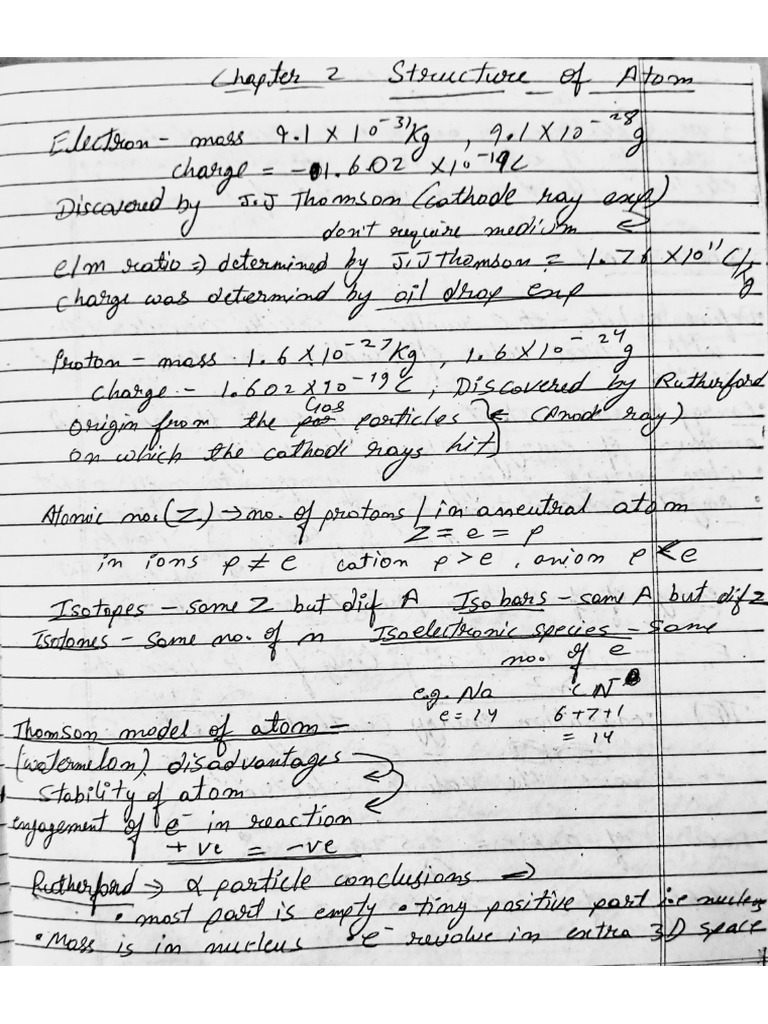 Chapter 2 Structure of Atom
Electron - mass 9.1 X 10⁻³¹Kg , 9.1 X 10⁻²⁸g
charge = -1.602 X10⁻¹⁹C
Discovered by J.J Thomson (Cathode ray exp)
don't require medium
e/m ratio => determined by J.J Thomson = 1.76 X10¹¹ C/kg
Charge was determind by oil drop exp
Proton - mass 1.6 X 10⁻²⁷Kg , 1.6 X 10⁻²⁴g
charge - 1.602 X 10⁻¹⁹C , Discovered by Rutherford
origin from the Gas particles ← (Anode ray)
on which the cathode rays hit
Atomic no.(Z.) → no. of protons / in a neutral atom
Z = e = p
in ions p ≠ e cation p > e , anion p < e
Isotopes - same Z but dif A Isobars - same A but dif Z
Isotones - same no. of n Isoelectronic species - same
no. of e
e.g. Na CN
e = 14 6+7+1
= 14
Thomson model of atom -
(watermelon) disadvantages
Stability of atom
engagement of e⁻ in reaction
+ve = -ve
Rutherford → α particle conclusions =>
• most part is empty • ting positive part i.e nucleus
• Mass is in nucleus • e⁻ revolve in extra 3D space